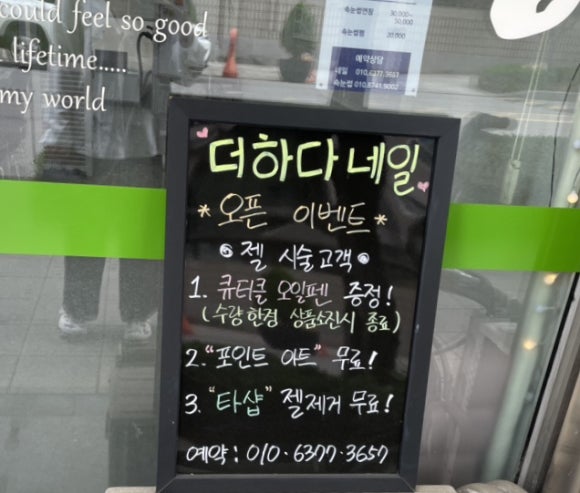 could feel so good
lifetime.....
my world
속눈썹연장 30,000~
50,000
속눈썹펌 20,000
예약상담
네일 010.6377.3657
속눈썹 010.8741.9002
더하다네일
*오픈 이벤트*
젤 시술고객
1. 큐티클 오일펜 증정!
(수량한정 상품소진시 종료)
2. "포인트 아트" 무료!
3. "타샵" 젤제거 무료!
예약 : 010·6377·3657